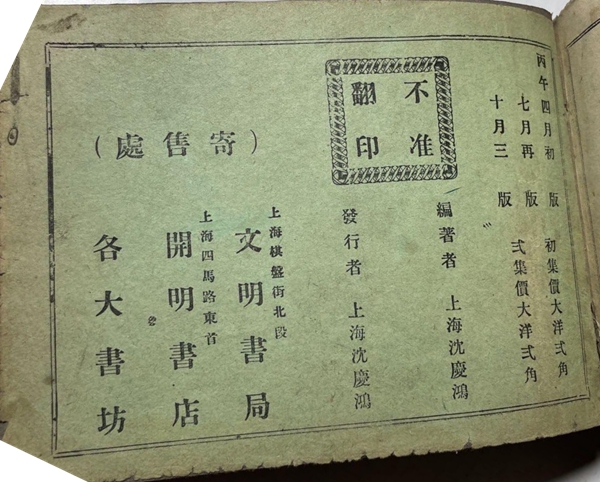 丙午四月初版 初集價大洋弍角
七月再版 弍集價大洋弍角
十月三版
不准
翻印
編著者 上海沈慶鴻
發行者 上海沈慶鴻
(寄售處)
上海棋盤街北段
文明書局
上海四馬路東首
開明書店
各大書坊